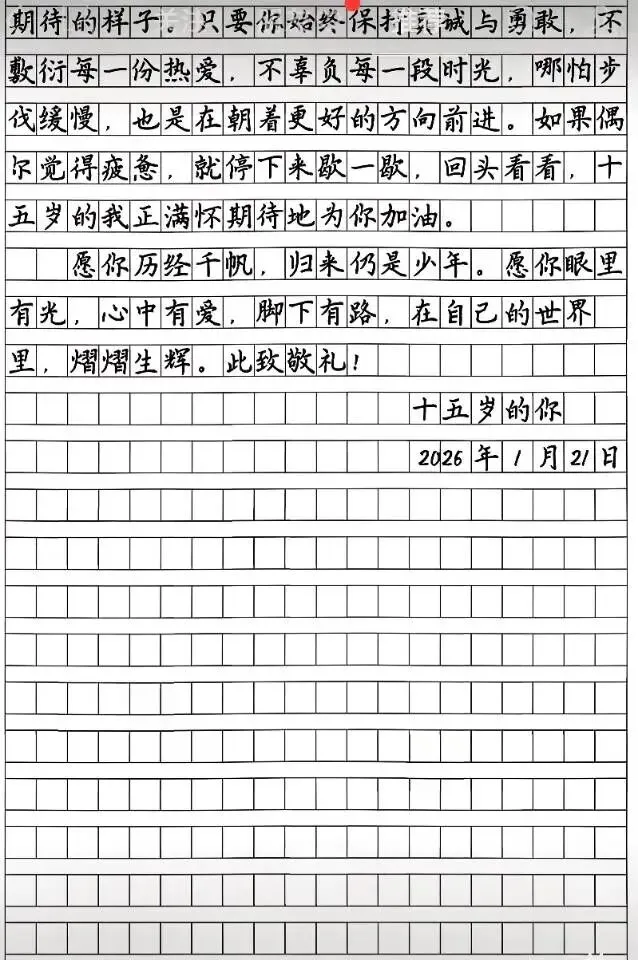 期待的样子。只要你始终保持真诚与勇敢，不
敷衍每一份热爱，不辜负每一段时光，哪怕步
伐缓慢，也是在朝着更好的方向前进。如果偶
尔觉得疲惫，就停下来歇一歇，回头看看，十
五岁的我正满怀期待地为你加油。
愿你历经千帆，归来仍是少年。愿你眼里
有光，心中有爱，脚下有路，在自己的世界
里，熠熠生辉。此致敬礼！
十五岁的你
2026年1月21日